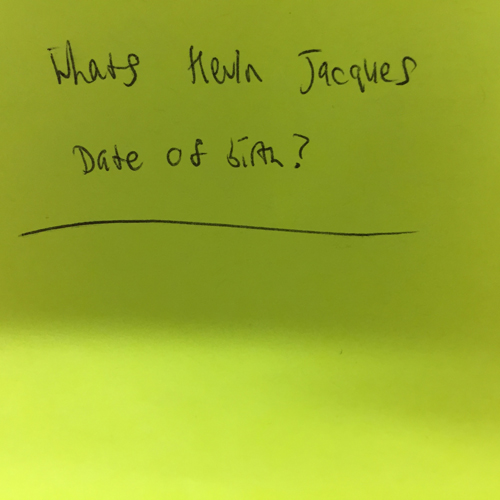 Whats Hevin Jacques
Date of birth?